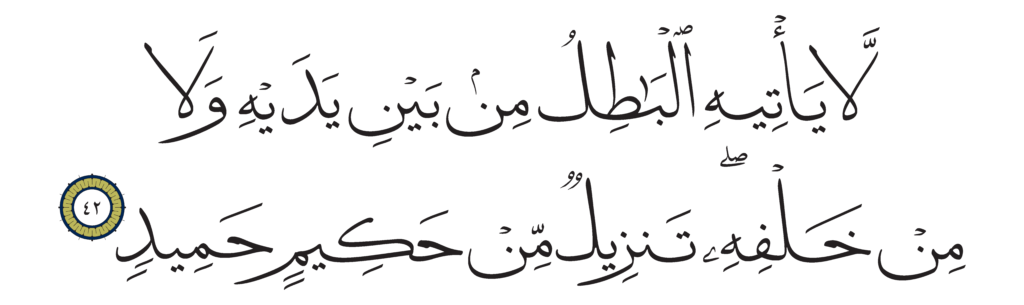 لَّا يَأْتِيهِ ٱلْبَٰطِلُ مِنۢ بَيْنِ يَدَيْهِ وَلَا
مِنْ خَلْفِهِۦۖ تَنزِيلٌ مِّنْ حَكِيمٍ حَمِيدٍ ٤٢